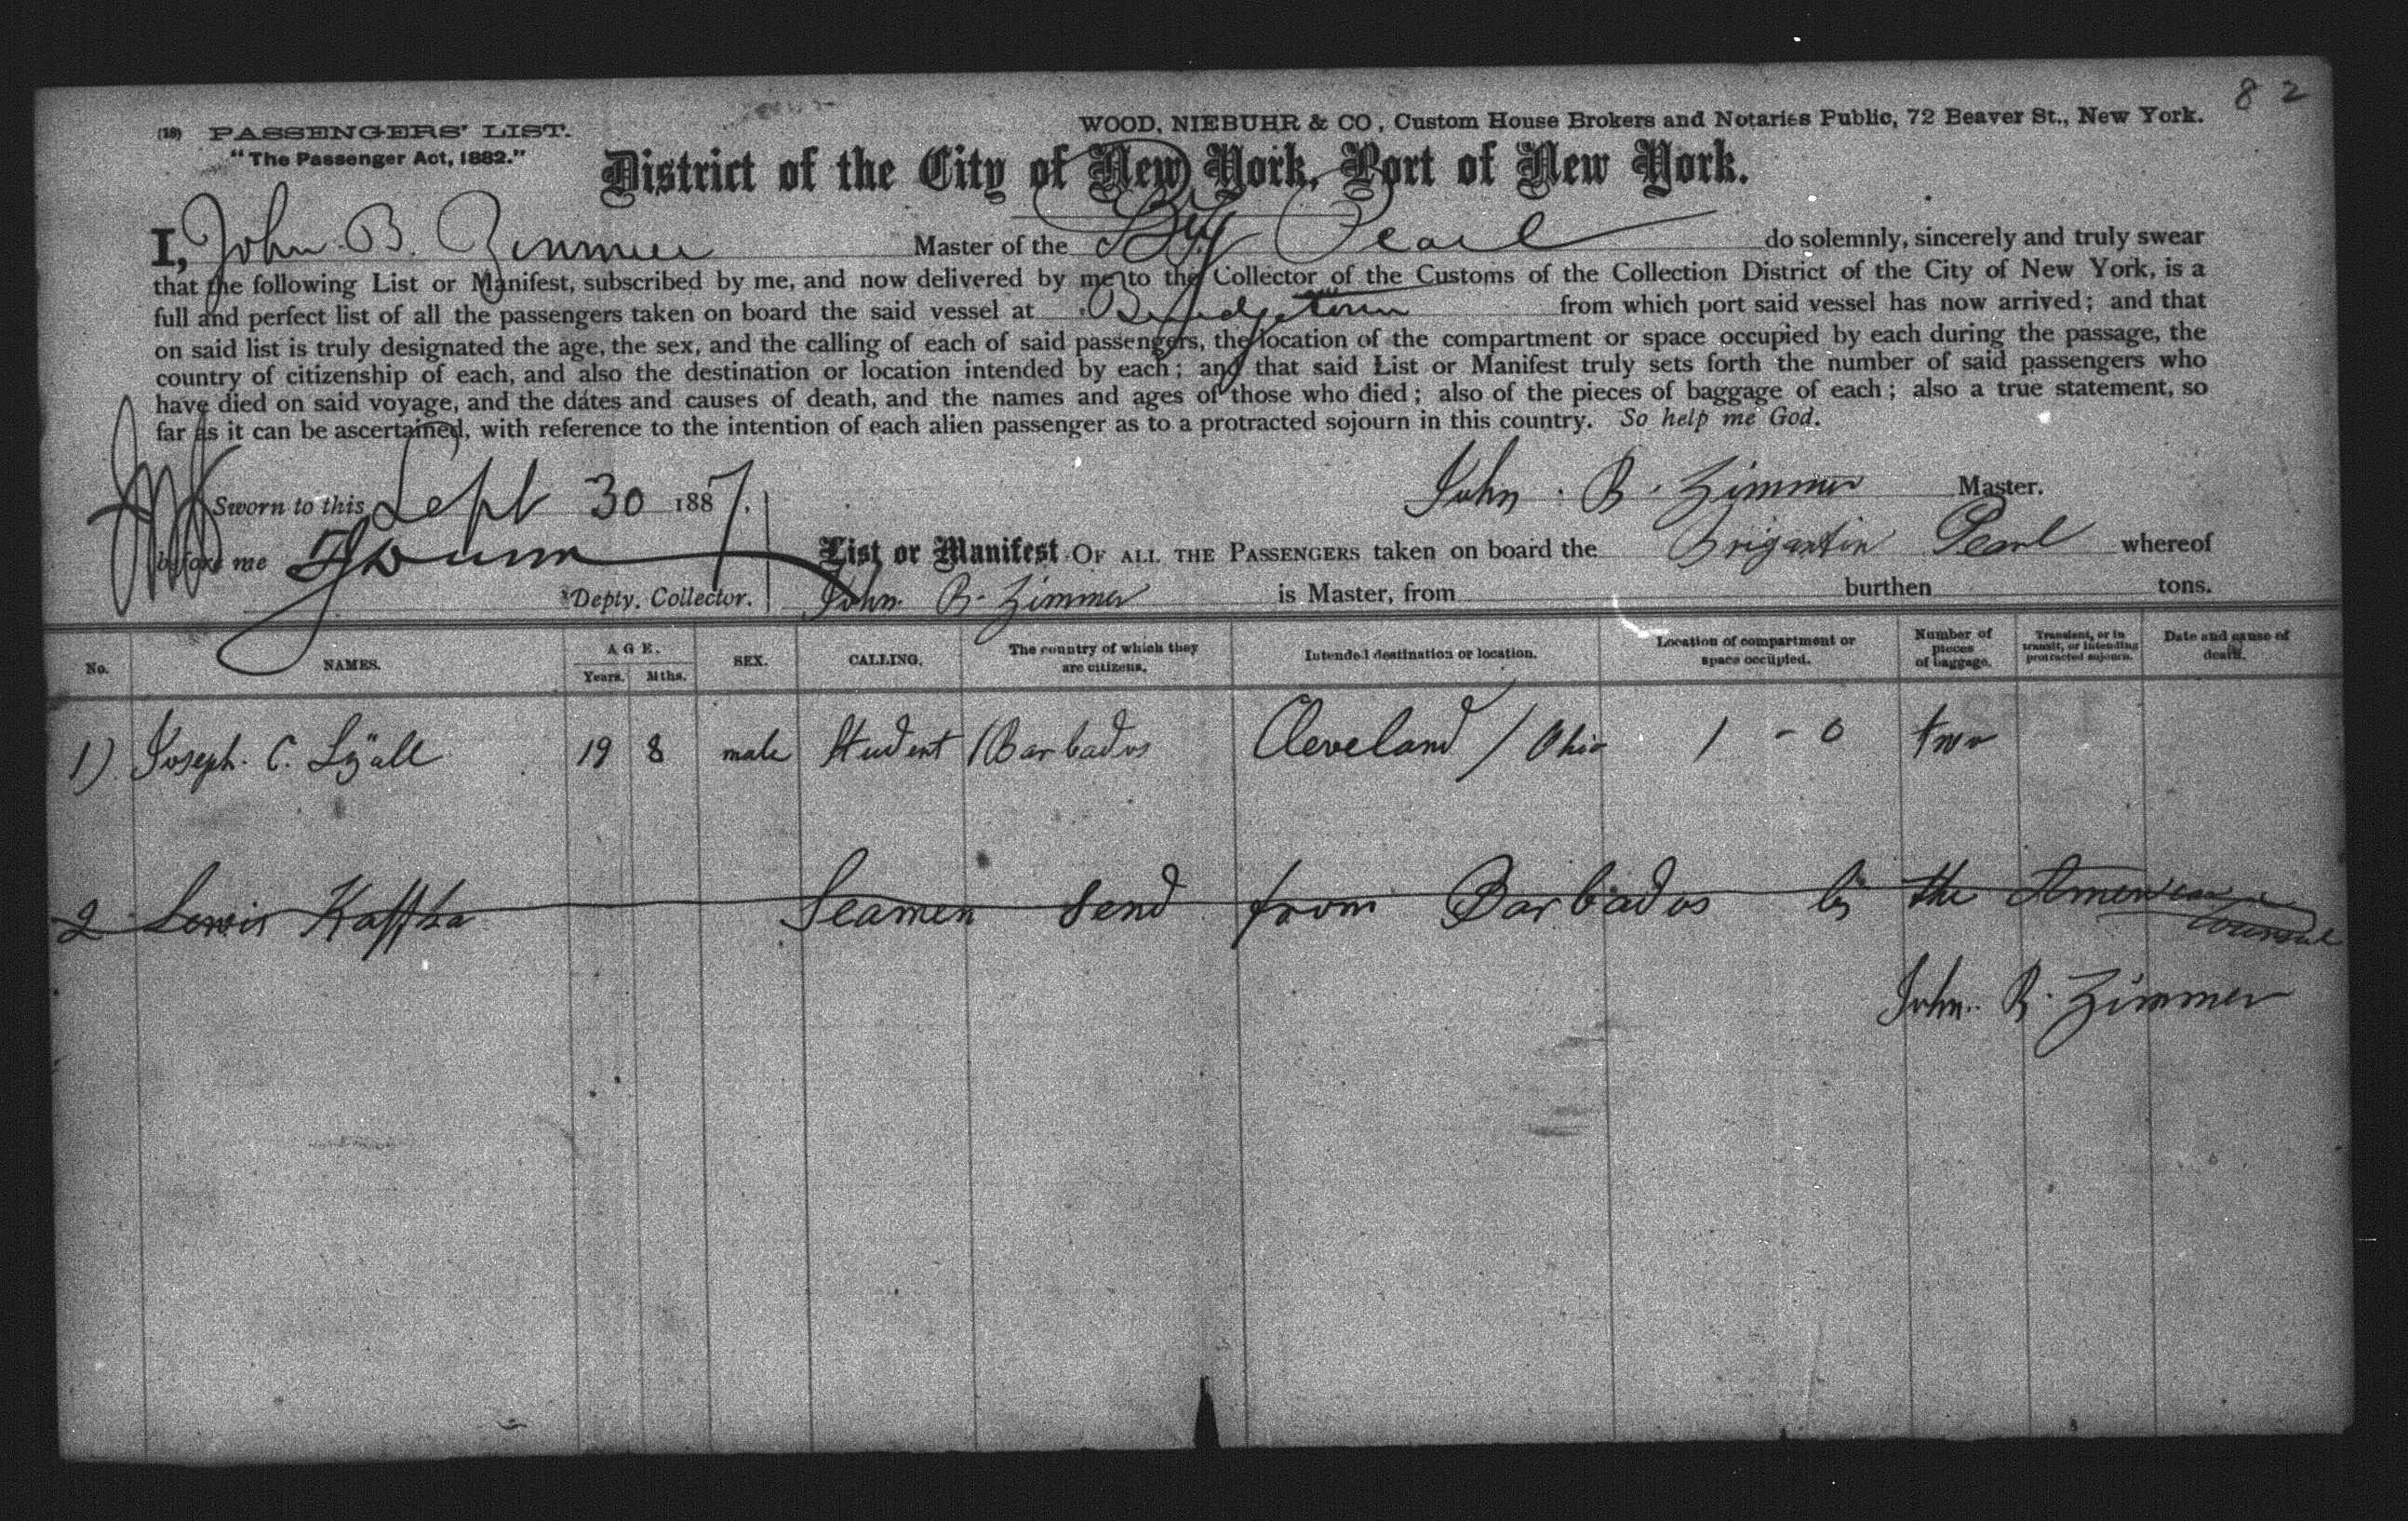 8 2
(18) PASSENGERS' LIST.
WOOD, NIEBUHR & CO, Custom House Brokers and Notaries Public, 72 Beaver St., New York.
"The Passenger Act, 1882."
District of the City of New York, Port of New York.
I, John B. Zimmer Master of the Brig Pearl do solemnly, sincerely and truly swear
that the following List or Manifest, subscribed by me, and now delivered by me to the Collector of the Customs of the Collection District of the City of New York, is a
full and perfect list of all the passengers taken on board the said vessel at Bridgetown from which port said vessel has now arrived; and that
on said list is truly designated the age, the sex, and the calling of each of said passengers, the location of the compartment or space occupied by each during the passage, the
country of citizenship of each, and also the destination or location intended by each; and that said List or Manifest truly sets forth the number of said passengers who
have died on said voyage, and the dates and causes of death, and the names and ages of those who died; also of the pieces of baggage of each; also a true statement, so
far as it can be ascertained, with reference to the intention of each alien passenger as to a protracted sojourn in this country. So help me God.
Sworn to this Sept 30 1887.
John. B. Zimmer Master.
before me
Depty. Collector.
List or Manifest OF ALL THE PASSENGERS taken on board the Brigantin Pearl whereof
John. B. Zimmer is Master, from burthen tons.
No. NAMES. AGE. Years. Mths. SEX. CALLING. The country of which they are citizens. Intended destination or location. Location of compartment or space occupied. Number of pieces of baggage. Transient, or in transit, or intending protracted sojourn. Date and cause of death.
1) Joseph. C. Lÿall 19 8 male Student / Barbados Cleveland / Ohio 1 - 0 two
2 Lewis Kaffka Seamen send from Barbados by the American
Counsul
John. B. Zimmer